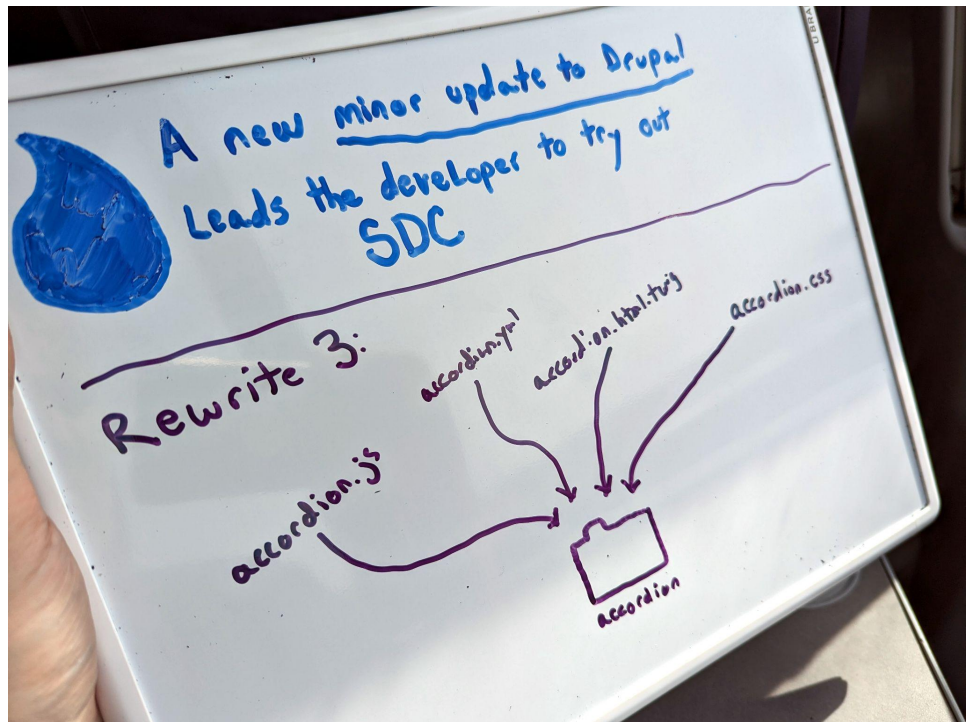 A new minor update to Drupal
Leads the developer to try out
SDC
Rewrite 3:
accordion.yml
accordion.html.twig
accordion.css
accordion.js
accordion